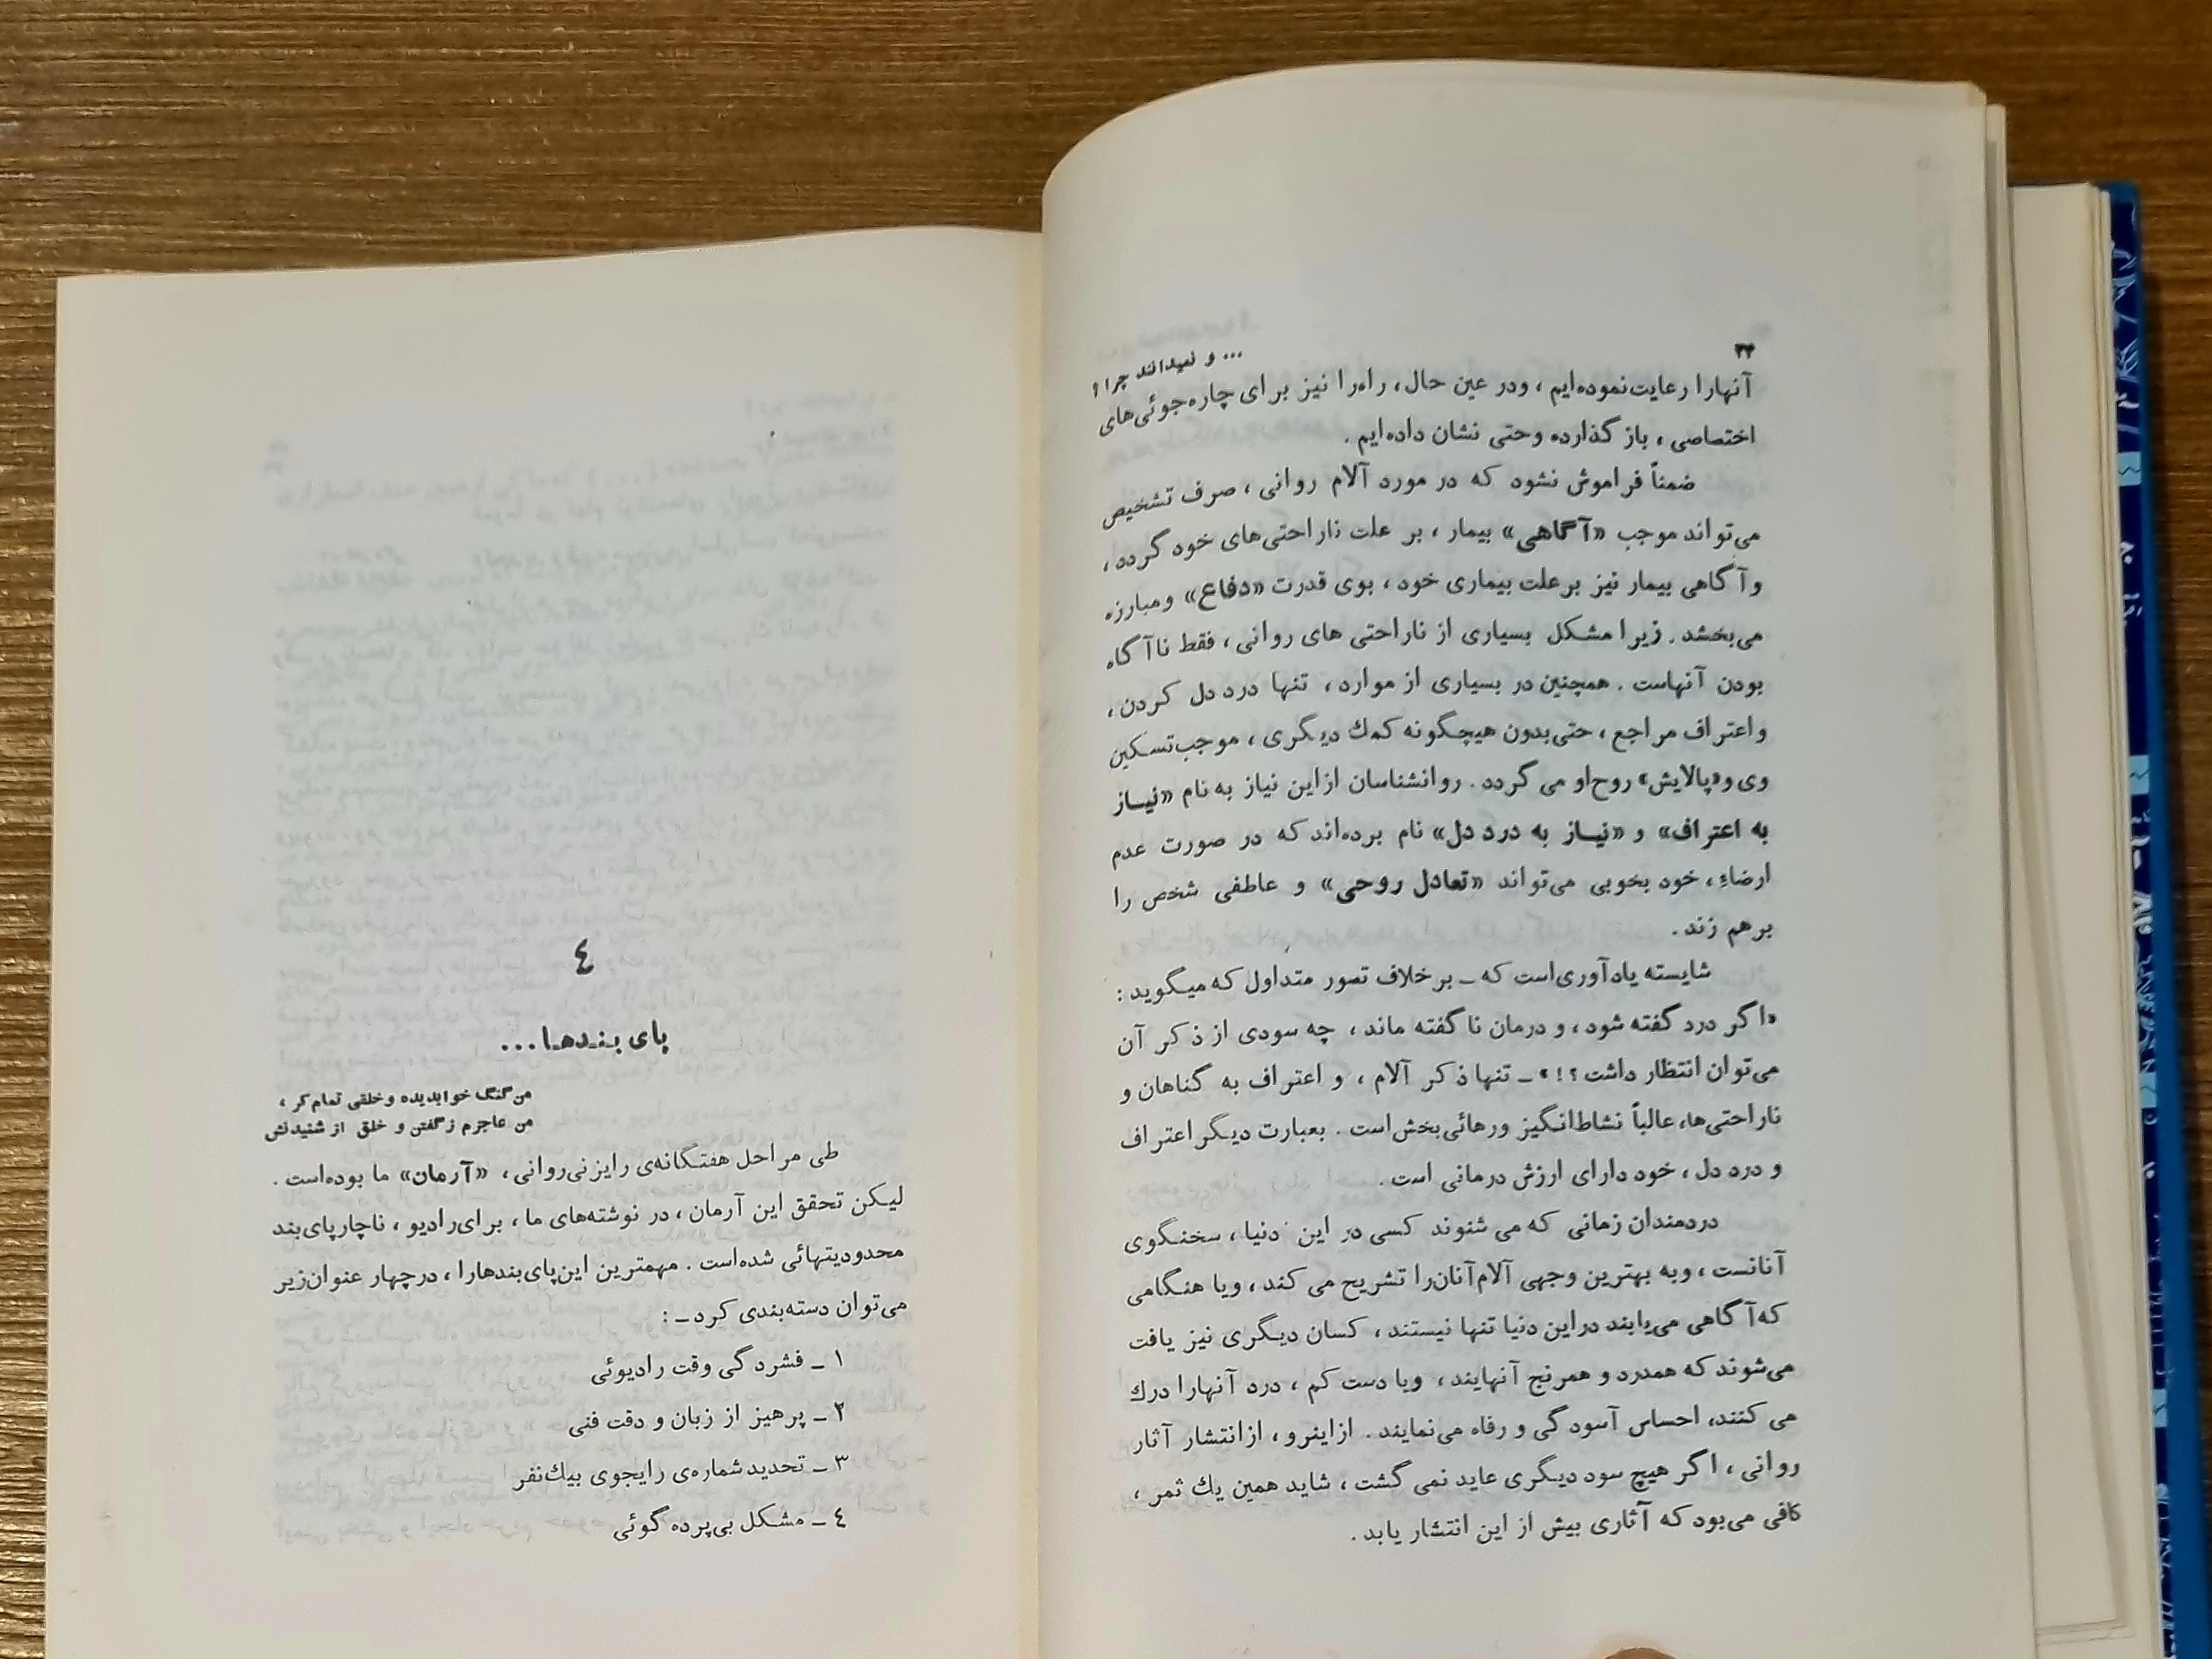 ۳۴
... و نمیدانند چرا ؟
آنهارا رعایت‌نموده‌ایم ، ودر عین حال ، راه‌را نیز برای چاره‌جوئی‌های
اختصاصی ، باز گذارده وحتی نشان داده‌ایم .
ضمناً فراموش نشود که در مورد آلام روانی ، صرف تشخیص
می‌تواند موجب «آگاهی» بیمار ، بر علت ناراحتی‌های خود گردد ،
وآگاهی بیمار نیز برعلت بیماری خود ، بوی قدرت «دفاع» ومبارزه
می‌بخشد . زیرا مشکل بسیاری از ناراحتی های روانی ، فقط ناآگاه
بودن آنهاست . همچنین در بسیاری از موارد ، تنها درد دل کردن ،
واعتراف مراجع ، حتی‌بدون هیچگونه کمك دیگری ، موجب‌تسکین
وی و«پالایش» روح‌او می گردد . روانشناسان ازاین نیاز به نام «نیـاز
به اعتراف» و «نیـاز به درد دل» نام برده‌اند که در صورت عدم
ارضاء ، خود بخوبی می‌تواند «تعادل روحی» و عاطفی شخص را
برهم زند .
شایسته یادآوری‌است که ــ برخلاف تصور متداول که میگوید :
«اگر درد گفته شود ، و درمان ناگفته ماند ، چه سودی از ذکر آن
می‌توان انتظار داشت ؟!» ــ تنها ذکر آلام ، و اعتراف به گناهان و
ناراحتی‌ها، عالباً نشاط‌انگیز ورهائی‌بخش‌است . بعبارت دیگر اعتراف
و درد دل ، خود دارای ارزش درمانی است .
دردمندان زمانی که می شنوند کسی در این دنیا ، سخنگوی
آنانست ، وبه بهترین وجهی آلام‌آنان‌را تشریح می کند ، ویا هنگامی
که‌آگاهی می‌یابند دراین دنیا تنها نیستند ، کسان دیگری نیز یافت
می‌شوند که همدرد و همرنج آنهایند ، ویا دست کم ، درد آنهارا درك
می کنند، احساس آسودگی و رفاه می‌نمایند . ازاینرو ، ازانتشار آثار
روانی ، اگر هیچ سود دیگری عاید نمی گشت ، شاید همین یك ثمر ،
کافی می‌بود که آثاری بیش از این انتشار یابد .
٤
پای بـنـدهـا...
من‌گنگ خوابدیده وخلقی تمام‌کر ،
من عاجزم زگفتن و خلق از شنیدنش
طی مراحل هفتگانه‌ی رایزنی‌روانی ، «آرمان» ما بوده‌است .
لیکن تحقق این آرمان ، در نوشته‌های ما ، برای‌رادیو ، ناچارپای‌بند
محدودیتهائی شده‌است . مهمترین این‌پای‌بندهارا ، درچهار عنوان‌زیر
می‌توان دسته‌بندی کرد ــ :
۱ ــ فشردگی وقت رادیوئی
۲ ــ پرهیز از زبان و دقت فنی
۳ ــ تحدید شماره‌ی رایجوی بیك‌نفر
٤ ــ مشکل بی‌پرده گوئی